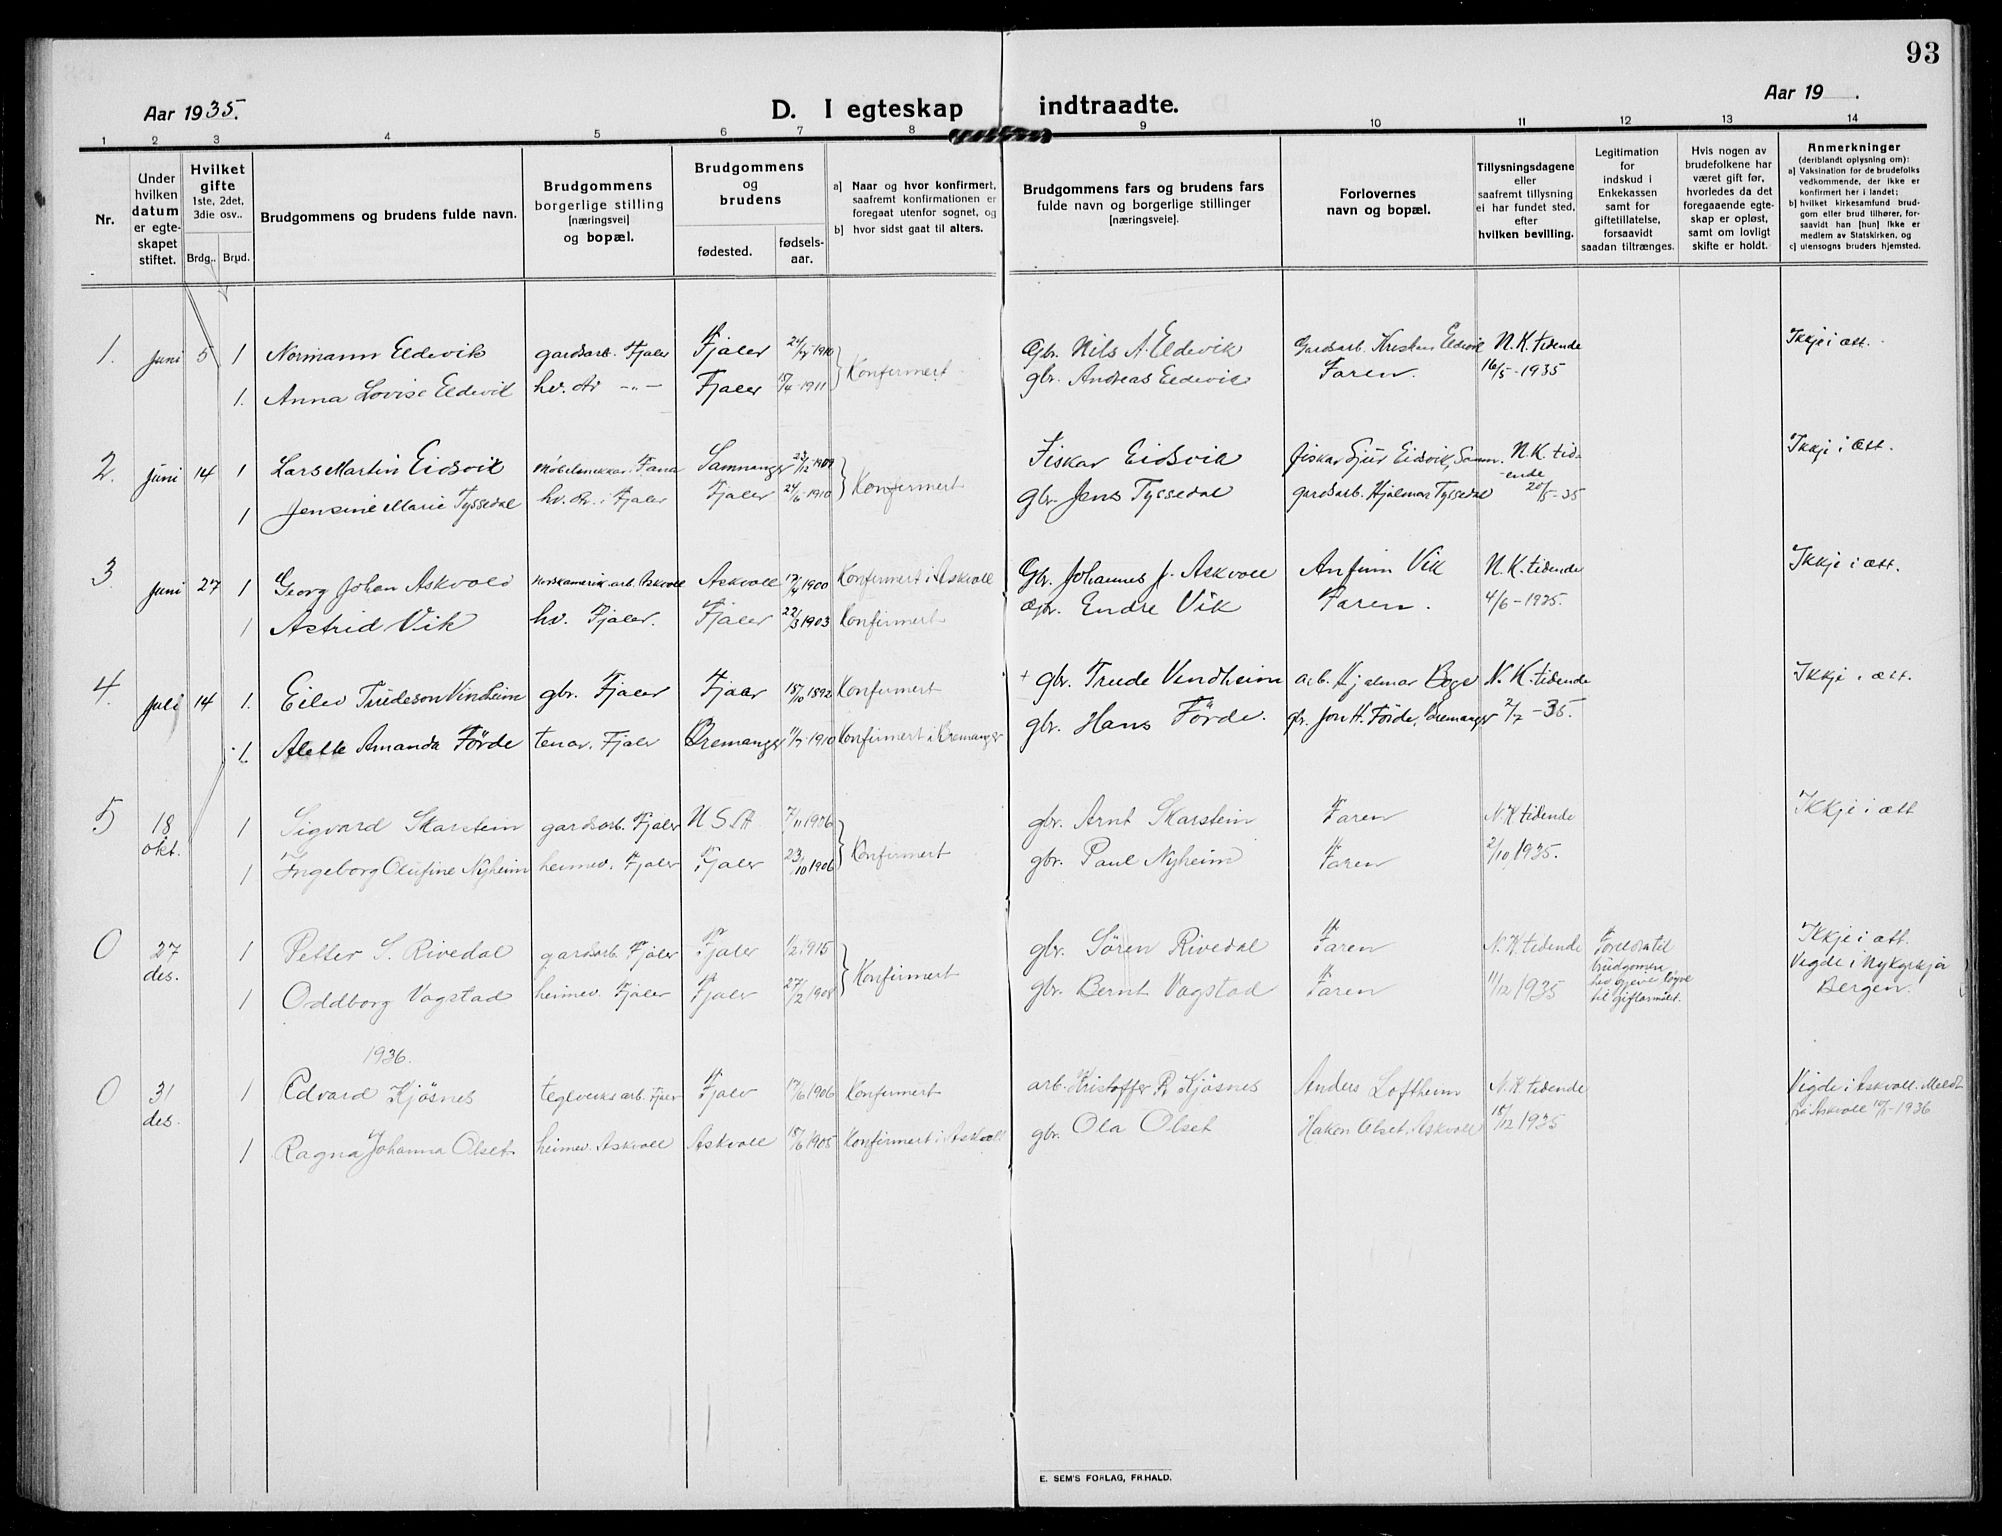 93
Aar 1935.
D. I egteskap indtraadte.
Aar 19 .
1 2 3 4 5 6 7 8 9 10 11 12 13 14
Nr.
Under hvilken datum er egteskapet stiftet.
Hvilket gifte 1ste, 2det, 3die osv..
Brdg.. Brud.
Brudgommens og brudens fulde navn.
Brudgommens borgerlige stilling [næringsvei] og bopæl.
Brudgommens og brudens
fødested. fødselsaar.
a] Naar og hvor konfirmert, saafremt konfirmationen er foregaat utenfor sognet, og
b] hvor sidst gaat til alters.
Brudgommens fars og brudens fars fulde navn og borgerlige stillinger [næringsveie].
Forlovernes navn og bopæl.
Tillysningsdagene eller saafremt tillysning ei har fundet sted, efter hvilken bevilling.
Legitimation for indskud i Enkekassen samt for giftetillatelse, forsaavidt saadan tiltrænges.
Hvis nogen av brudefolkene har været gift før, hvorledes da det foregaaende egteskap er opløst, samt om lovligt skifte er holdt.
Anmerkninger
(deriblandt oplysning om):
a] Vaksination for de brudefolks vedkommende, der ikke er konfirmert her i landet;
b] hvilket kirkesamfund brudgom eller brud tilhører, forsaavidt han [hun] ikke er medlem av Statskirken, og
c] utensogns bruders hjemsted.
1. Juni 5 1 Normann Eldevik gardsarb. Fjaler Fjaler 1910 Konfirmert Gbr. Nils A. Eldevik Gardsarb. Eldevik N. K. tidende Ikkje i ætt.
1. Anna Lovise Eldevik hv. Fjaler 1911 gbr. Andreas Eldevik Faren. 16/5-1935
2. Juni 14 1 Lars Martin Eidsvik Fana Samnanger 1909 Konfirmert Fiskar Eidsvik fiskar Sjur Eidsvik, Samn. N. K. tidende Ikkje i ætt.
1 Jensine Marie Tyssedal hv. i Fjaler Fjaler 1910 gbr. Jens Tyssedal gardsarb. Hjalmar Tyssedal 20/5-35
3. Juni 27 1 Georg Johan Askvoll arb. Askvoll Askvoll 1900 Konfirmert i Askvoll Gbr. Johannes J. Askvoll Anfinn Vik N. K. tidende Ikkje i ætt.
1 Astrid Vik hv. Fjaler. Fjaler 22/3 1903 Konfirmert Endre Vik Faren. 4/6-1935.
4. Juli 14 1. Eilev Trudeson Vindheim gbr. Fjaler Fjaler 18/10 1892 Konfirmert + gbr. Trude Vindheim arb. Hjalmar N. K. tidende Ikkje i ætt.
1. Alette Amanda Förde Fjaler Bremanger 1910 Konfirmert i Bremanger gbr. Hans Förde. gbr. Jon H. Förde, Bremanger 2/7-35.
5 18 okt. 1 Sigvard Skarstein gardsarb. Fjaler U.S.A. 7/11 1906 Konfirmert gbr. Arnt Skarstein Faren N. K. tidende Ikkje i ætt
1 Ingeborg Olufine Nyheim heimev. Fjaler Fjaler 23/10 1906 gbr. Paul Nyheim Faren 2/10 1935.
0 27 des. 1 Petter S. Rivedal gardsarb. Fjaler Fjaler 1/2 1915 Konfirmert gbr. Sören Rivedal Faren N. K. tidende Foreldra til brudgomen hev gjeve löyve til giftarmålet. Ikkje i ætt. Vigde i Nykyrkja Bergen.
1 Oddborg Vagstad heimev. Fjaler Fjaler 27/12 1908 gbr. Bernt Vagstad Faren 11/12 1935
1936.
0 31 des. 1 Edvard Kjösnes teglverksarb. Fjaler Fjaler 17/6 1906 Konfirmert arb. Kristoffer R. Kjösnes Anders Loftheim N. K. tidende Vigde i Askvoll. Meldt frå Askvoll 1936
1 Ragna Johanna Olset heimev. Askvoll Askvoll 18/6 1905 Konfirmert i Askvoll gbr. Ola Olset Håkon Olset, Askvoll 18/12 1935
E. SEM'S FORLAG, FR.HALD.